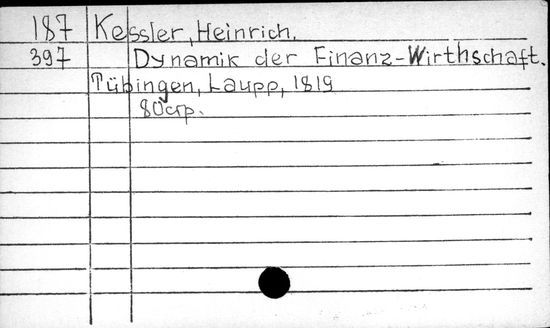 187 Kessler, Heinrich.
397 Dynamik der Finanz-Wirthschaft.
Tübingen, Laupp, 1819
80 стр.